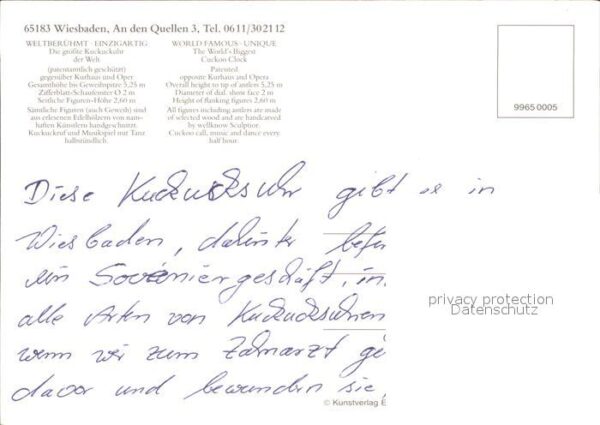 65183 Wiesbaden, An den Quellen 3, Tel. 0611/302112
WELTBERÜHMT · EINZIGARTIG
Die größte Kuckucksuhr
der Welt
(patentamtlich geschützt)
gegenüber Kurhaus und Oper
Gesamthöhe bis Geweihspitze 5,25 m
Zifferblatt-Schaufenster Ø 2 m
Seitliche Figuren-Höhe 2,60 m
Sämtliche Figuren (auch Geweih) sind
aus erlesenen Edelhölzern von nam-
haften Künstlern handgeschnitzt.
Kuckuckruf und Musikspiel mit Tanz
halbstündlich.
WORLD FAMOUS · UNIQUE
The World's Biggest
Cuckoo-Clock
Patented
opposite Kurhaus and Opera
Overall height to tip of antlers 5,25 m
Diameter of dial, show face 2 m
Height of flanking figures 2,60 m
All figures including antlers are made
of selected wood and are handcarved
by wellknow Sculptior.
Cuckoo call, music and dance every
half hour.
9965 0005
Diese Kuckucksuhr gibt es in
Wiesbaden, dahinter befin
ein Souveniergeschäft, in
alle Arten von Kuckucksuhren
wenn wir zum Zahnarzt ge
davor und bewundern sie,
privacy protection
Datenschutz
© Kunstverlag E